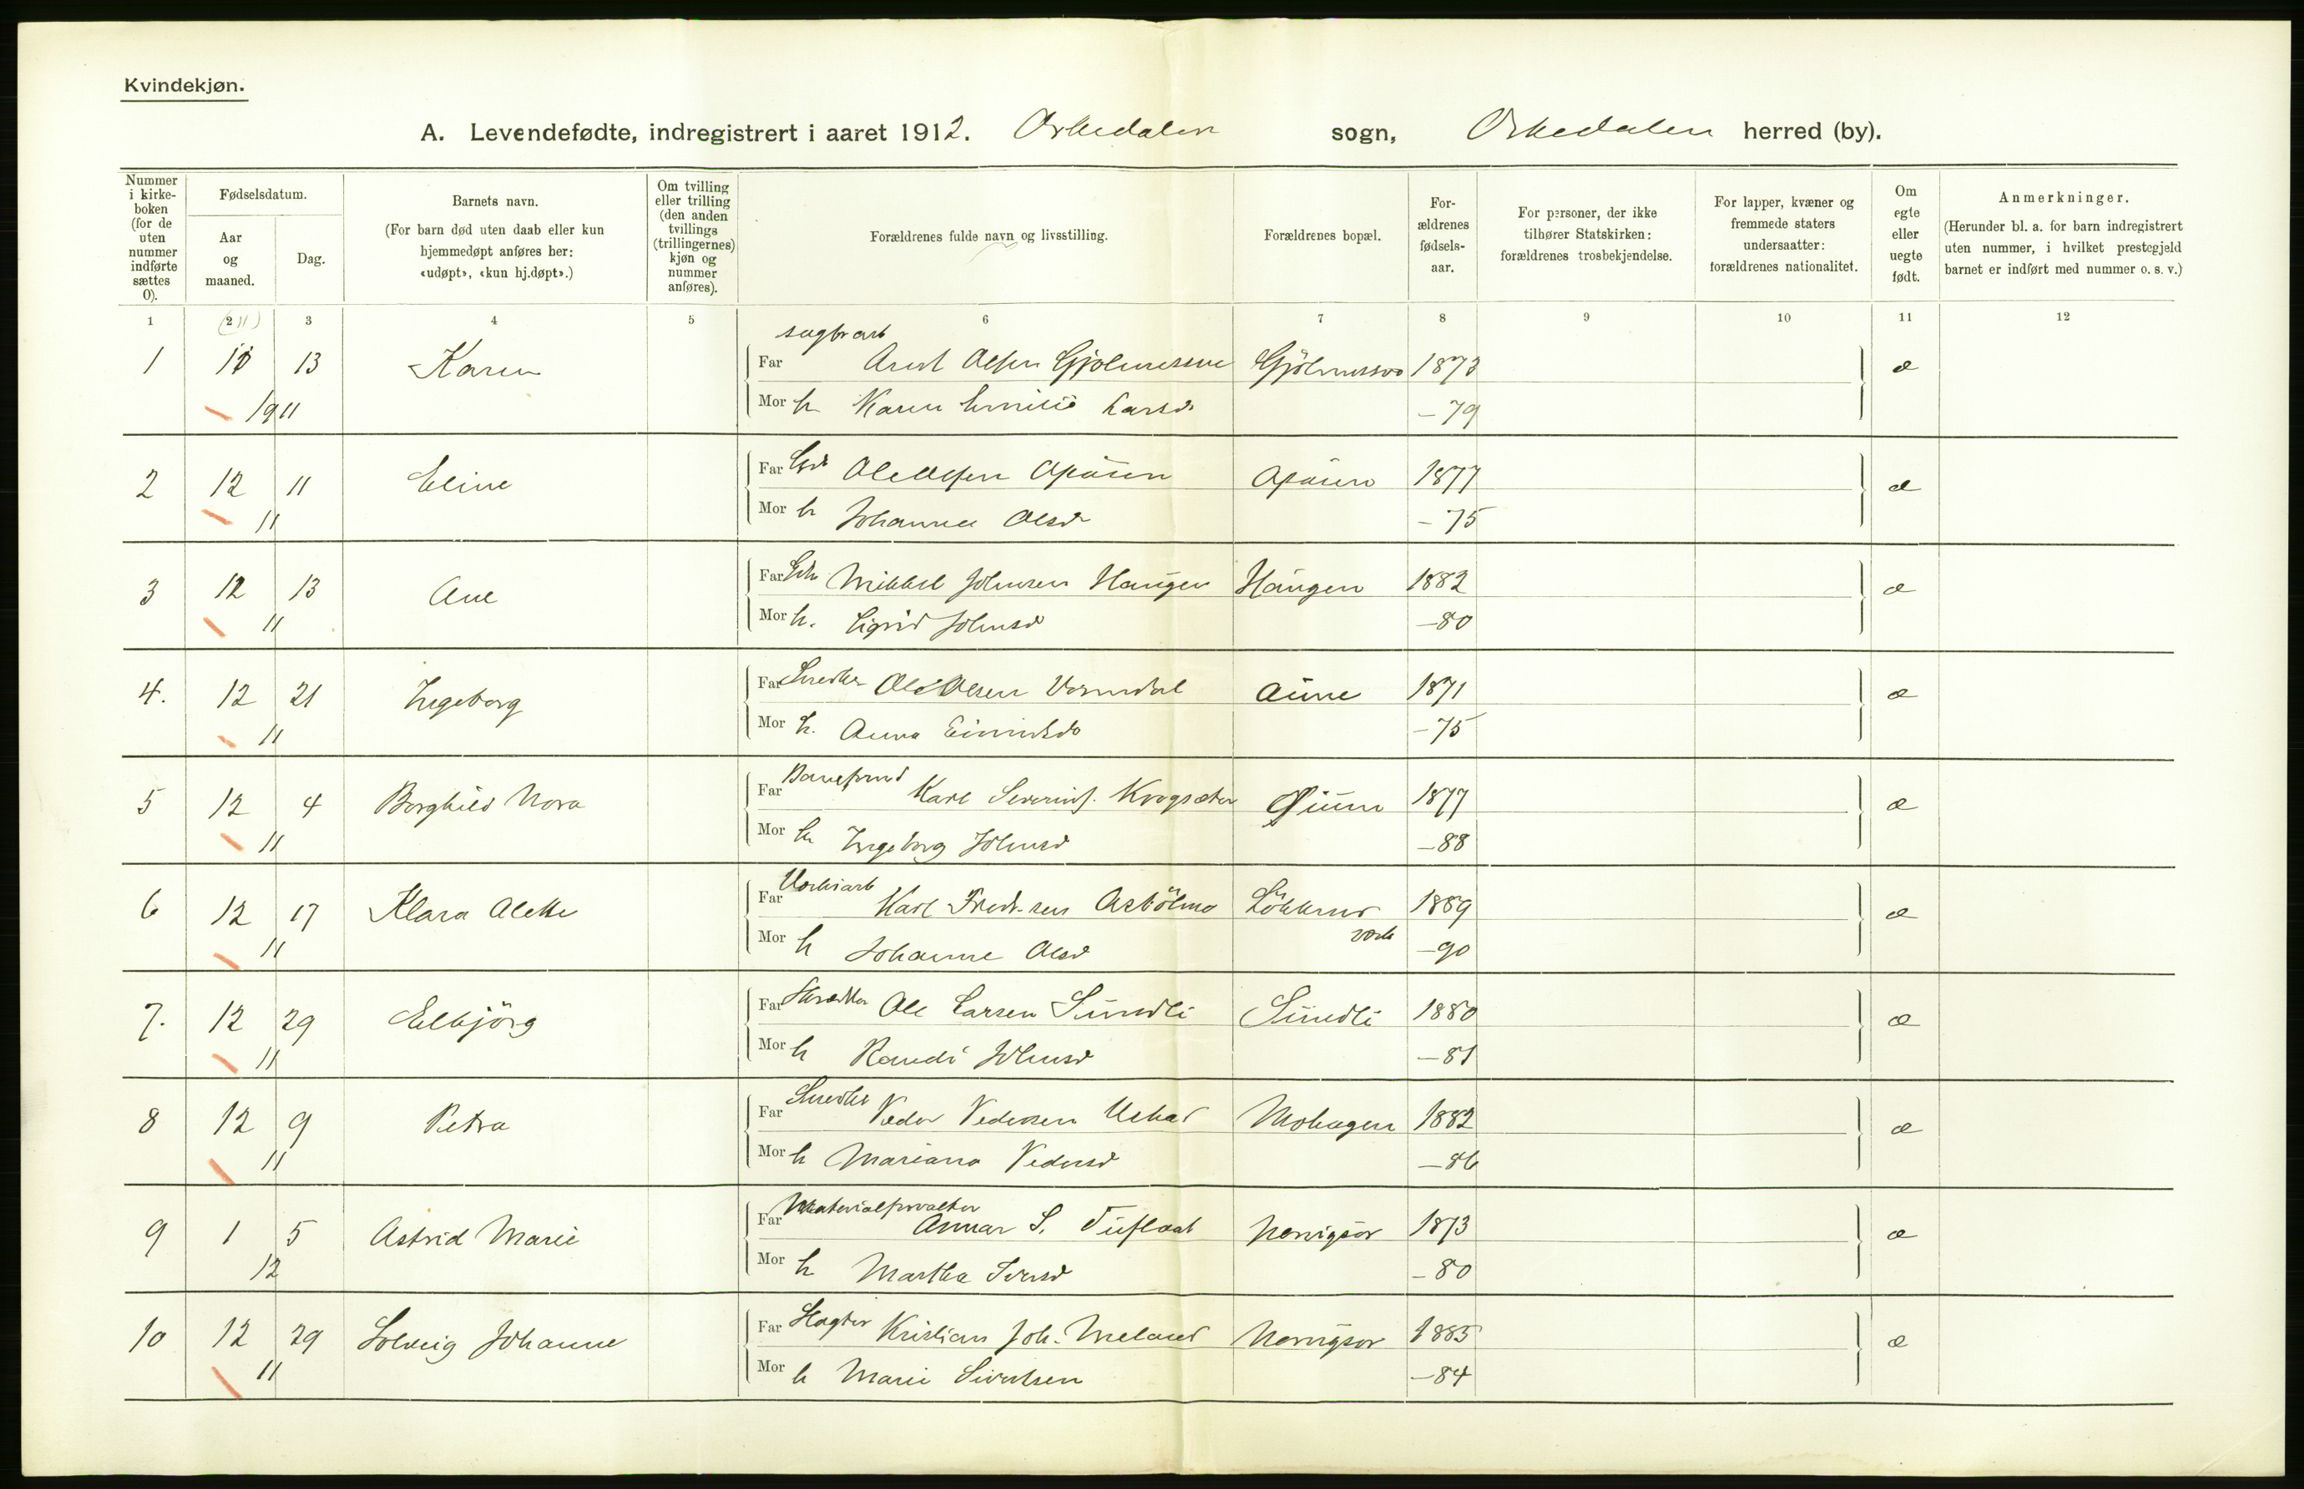 Kvindekjøn.
A. Levendefødte, indregistrert i aaret 1912. Orkedalen sogn, Orkedalen herred (by).
Nummer i kirkeboken (for de uten nummer indførte sættes 0).
Fødselsdatum.
Aar og maaned.
Dag.
Barnets navn.
(For barn død uten daab eller kun hjemmedøpt anføres her: «udøpt», «kun hj.døpt».)
Om tvilling eller trilling (den anden tvillings (trillingernes) kjøn og nummer anføres).
Forældrenes fulde navn og livsstilling.
Forældrenes bopæl.
Forældrenes fødselsaar.
For personer, der ikke tilhører Statskirken: forældrenes trosbekjendelse.
For lapper, kvæner og fremmede staters undersaatter: forældrenes nationalitet.
Om egte eller uegte født.
Anmerkninger.
(Herunder bl. a. for barn indregistrert uten nummer, i hvilket prestegjeld barnet er indført med nummer o. s. v.)
1 2 (11) 3 4 5 6 7 8 9 10 11 12
sagbrarb
1 11 13 Karen Far Arnt Olsen Gjølmesmo 1873 æ
1911 Mor h Karen Emilie Larsd —79
2 12 11 Eline Far Ole Olsen 1877 æ
11 Mor h Johanna Olsd —75
3 12 13 Ane Far Mikkel Johnsen Haugen Haugen 1882 æ
11 Mor h. Sigrid Johnsd —80
4. 12 21 Ingeborg Far Ole Olsen Vormdal Aune 1871 æ
11 Mor h. Anna Eirindsd —75
Baneformd
5 12 4 Borghild Nora Far Karl Severins. Krogsæter 1877 æ
11 Mor h Ingeborg Johnsd —88
6 12 17 Klara Alette Far Karl Fredr.sen Asbölmo Lökkens 1889 æ
verk
11 Mor h Johanne Olsd —90
7. 12 29 Elbjörg Far Skrædder Ole Larsen Sundli Sundli 1880 æ
11 Mor h Randi Johnsd —81
8 12 9 Petra Far Peder Pedersen Mohagen 1882 æ
11 Mor h Mariana Pedersd —86
Materialforvalter
9 1 5 Astrid Marie Far S. Tuflaat 1873 æ
12 Mor h Martha Iversd —80
10 12 29 Solveig Johanne Far Slagter Kristian Joh. Meland 1885 æ
11 Mor h Marie Sivertsen —84